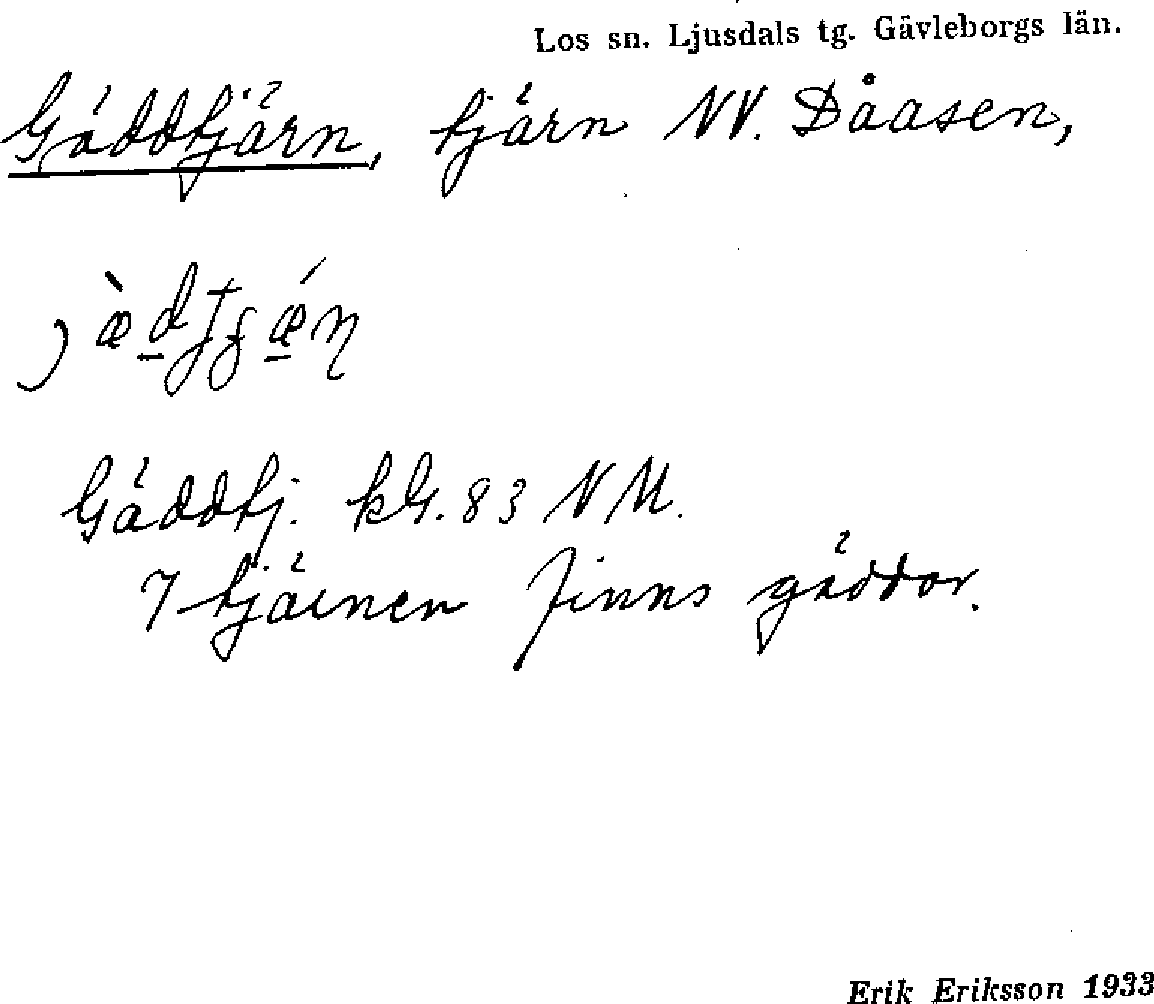 Los sn. Ljusdals tg. Gävleborgs län.
Gäddtjärn, tjärn NV. Dåasen,
Gäddtj. kG. 83 NM.
I tjärnen finns gäddor.
Erik Eriksson 1933